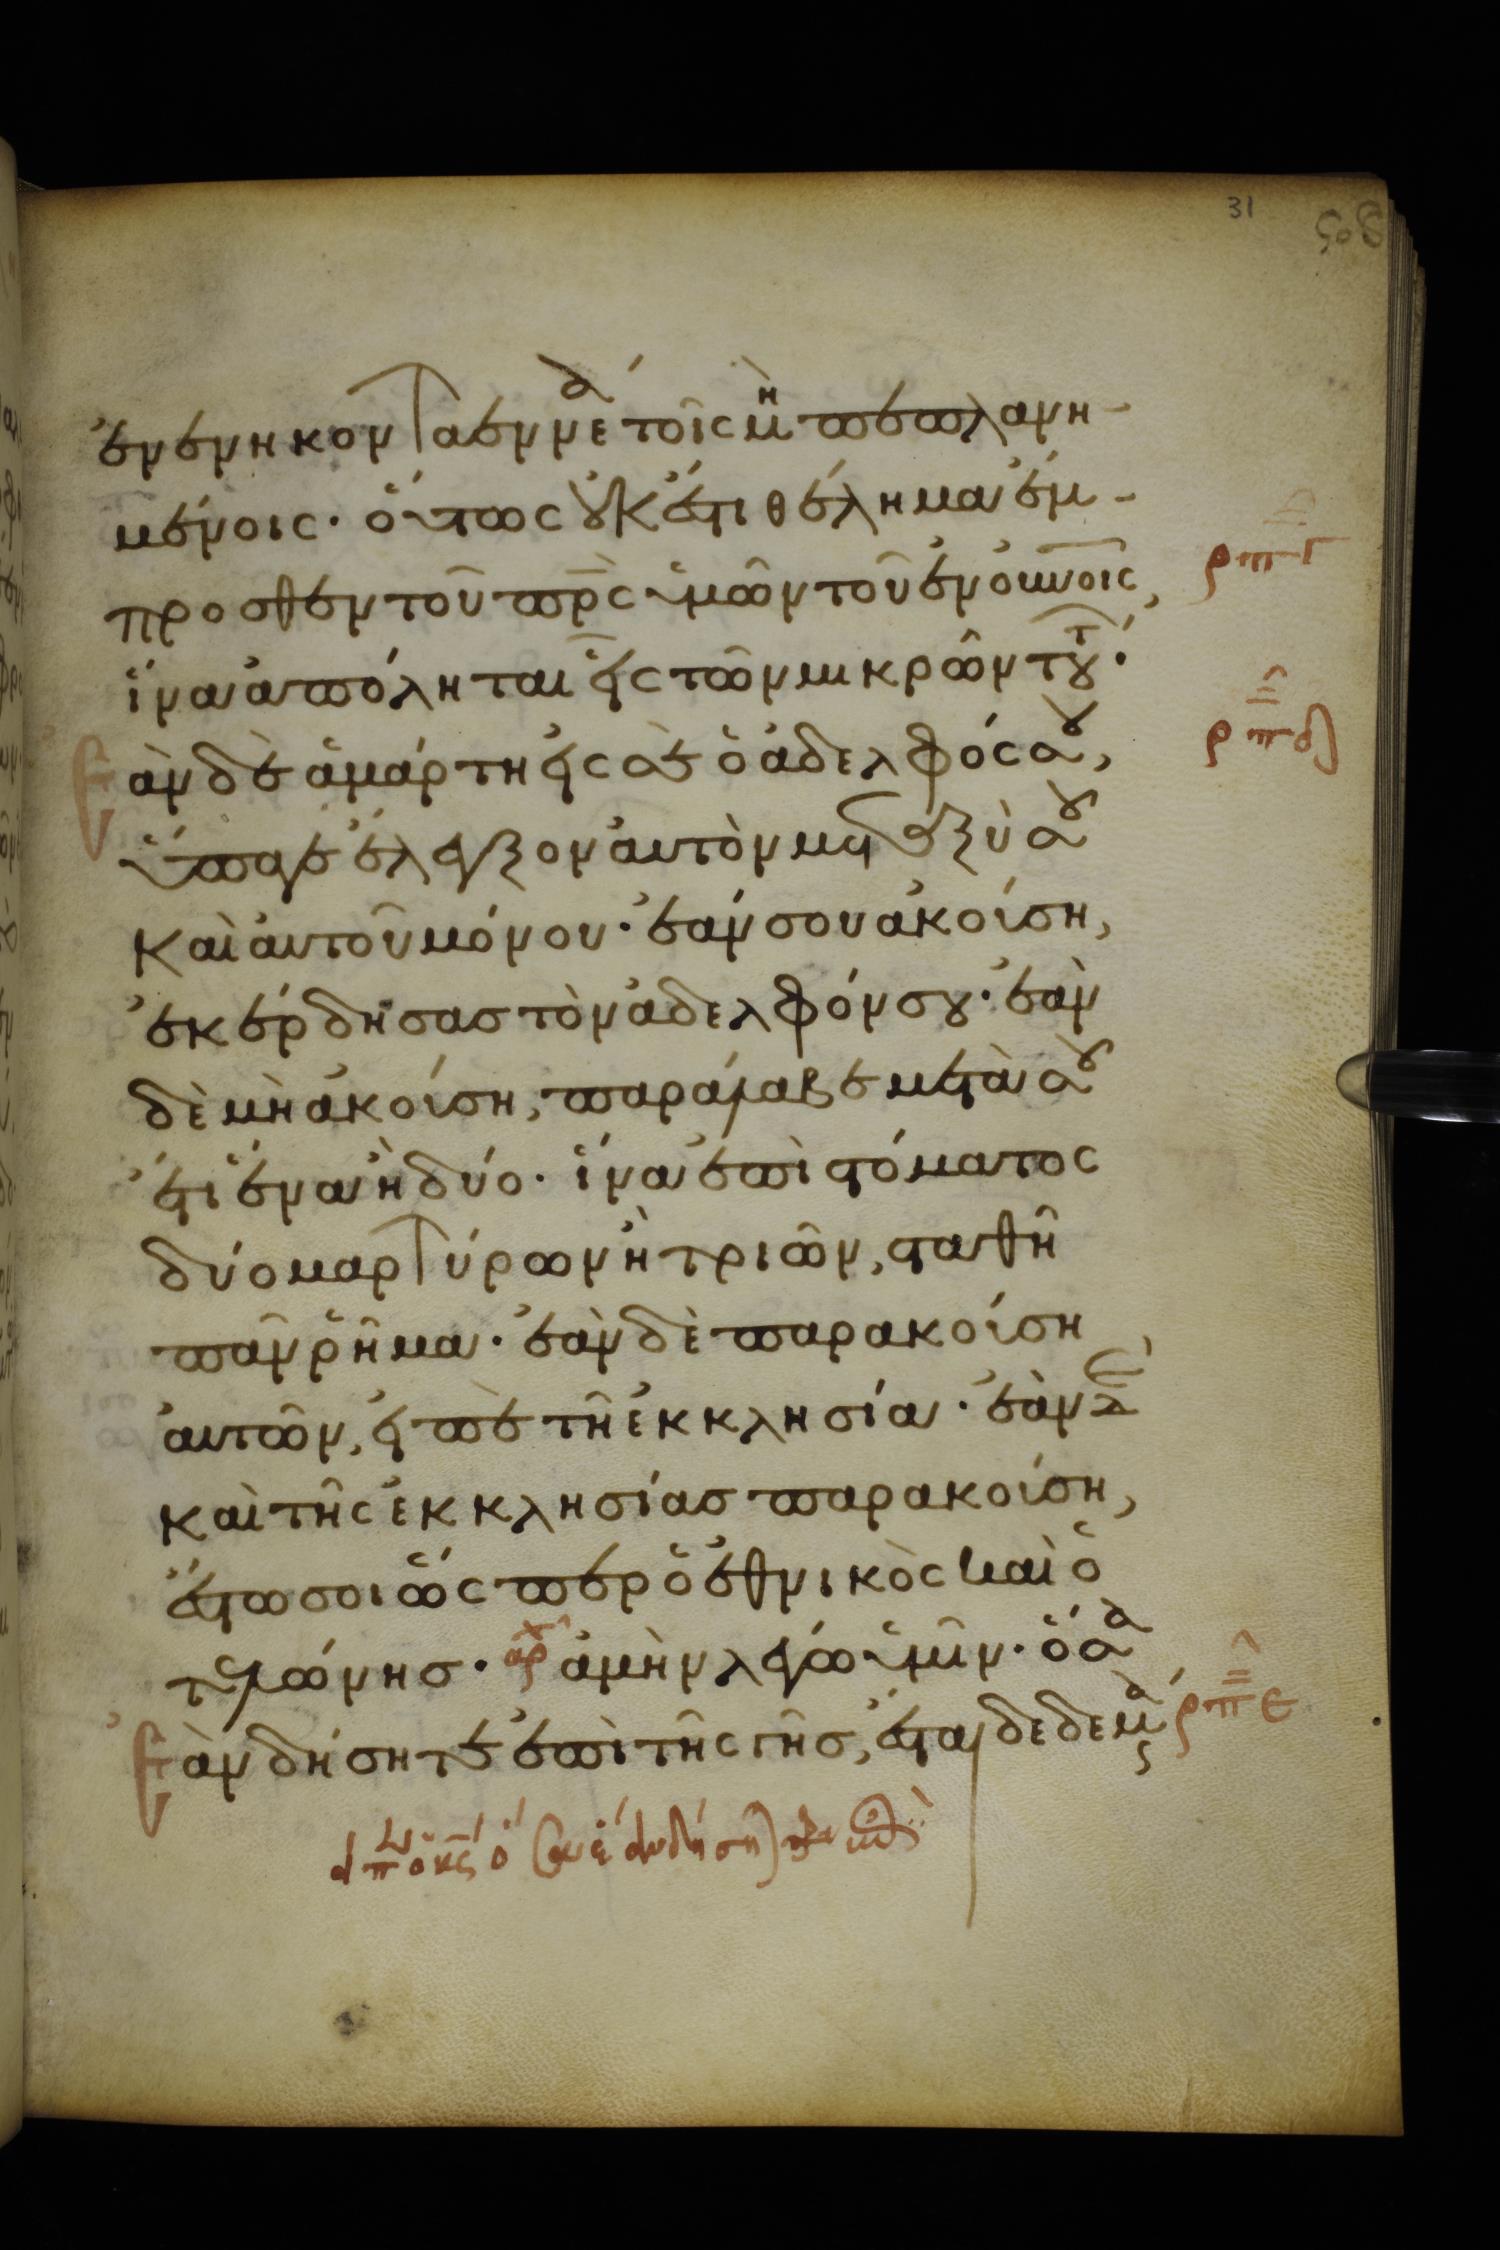 31
ἐνενηκονταενν̀έα τοῖς μὴ πεπλανη-
μένοις· οὕτως οὐκ ἔστι θέλημα ἔμ-
προσθεν τοῦ π̅ρ̅ς ὑμῶν τοῦ ἐν ο̅υ̅ν̅οις,
ἵνα ἀπόληται εἷς τῶν μικρῶν τούτ·
ρπγ
ἐὰν δὲ ἁμάρτη εἰς σὲ ὁ ἀδελφός σου,
ρπδ
ὕπαγε ἔλεγξον αὐτὸν μεταξὺ σοῦ
καὶ αὐτοῦ μόνου· ἐάν σου ἀκούση,
ἐκέρδησας τὸν ἀδελφόν σου· ἐὰν
δὲ μὴ ἀκούση, παράλαβε μετὰ σοῦ
ἔτι ἕνα ἢ δύο· ἵνα ἐπὶ στόματος
δύο μαρτύρων ἢ τριῶν, σταθῆ
πᾶν ῥῆμα· ἐὰν δὲ παρακούση
αὐτῶν, εἰπὲ τῆ ἐκκλησία· ἐὰν δὲ
καὶ τῆς ἐκκλησίας παρακούση,
ἔστω σοι ὥσπερ ὁ ἐθνικὸς καὶ ὁ
τελώνης· ἀρχ ἀμὴν λέγω ὑμῖν· ὅσα
ἐὰν δήσητε ἐπὶ τῆς γῆς, ἔσται δεδεμα
ρπε